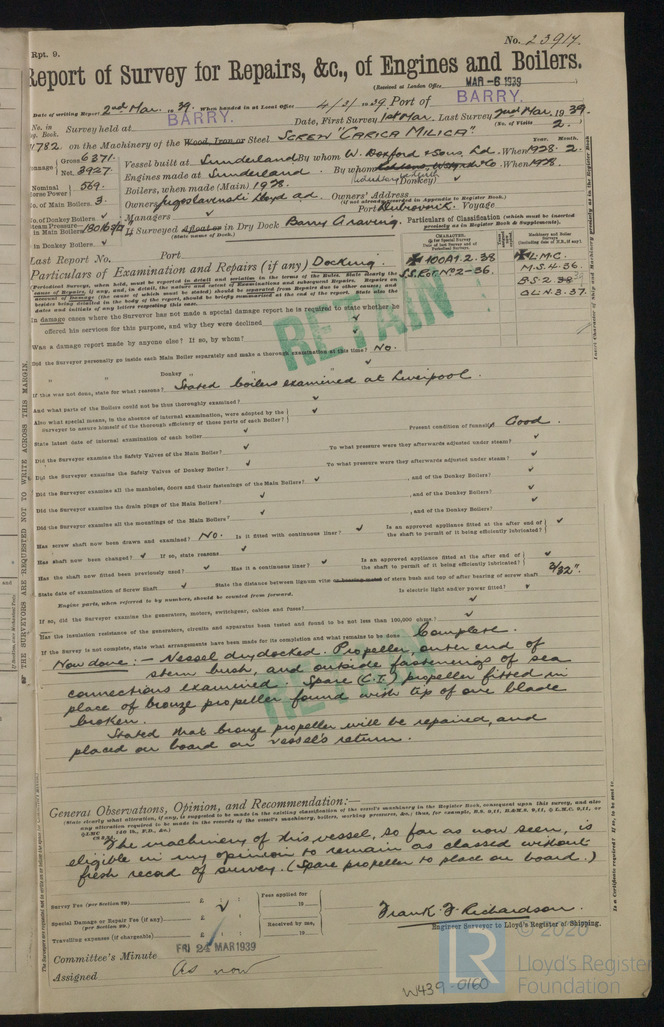 Rpt. 9.
No. 23917.
Report of Survey for Repairs, &c., of Engines and Boilers.
(Received at London Office MAR -6 1939
Date of writing Report 2nd Mar. 19 39. When handed in at Local Office 4/3/1939. Port of BARRY.
No. in Survey held at BARRY. Date, First Survey 1st Mar. Last Survey 2nd Mar. 1939.
Reg. Book. (No. of Visits 2.
on the Machinery of the Wood, Iron or Steel SCREW "CARICA MILICA"
Gross 6371. Vessel built at Sunderland By whom W. Doxford & Sons, Ld. When 1928. 2.
Net. 3927. Engines made at Sunderland. By whom When 1928.
Nominal Horse Power 569. Boilers, when made (Main) 1928. (Donkey) ✓
No. of Main Boilers 3. Owners Jugoslavenski Lloyd a.d. Owners' Address
(if not already recorded in Appendix to Register Book.)
No. of Donkey Boilers ✓ Managers ✓ Port Dubrovnik. Voyage
Steam Pressure in Main Boilers 180 lbs If Surveyed Afloat or in Dry Dock Barry Graving.
(State name of Dock.)
Particulars of Classification (which must be inserted precisely as in Register Book & Supplements).
in Donkey Boilers. ✓
Last Report No. Port
100A1.2.38
S.S.Est No2-36.
L.M.C.
M.S.4.36.
B.S.2.38
O.L.N.3.37.
Particulars of Examination and Repairs (if any) Docking.
RETAIN
In damage cases where the Surveyor has not made a special damage report he is required to state whether he
offered his services for this purpose, and why they were declined ✓
Was a damage report made by anyone else? If so, by whom? ✓
Did the Surveyor personally go inside each Main Boiler separately and make a thorough examination at this time? No.
" " Donkey " " " ✓
If this was not done, state for what reasons? Stated boilers examined at Liverpool.
And what parts of the Boilers could not be thoroughly examined? ✓
Also what special means, in the absence of internal examination, were adopted by the
Surveyor to assure himself of the thorough efficiency of those parts of each Boiler? ✓
State latest date of internal examination of each boiler ✓ Present condition of funnel(s) Good.
Did the Surveyor examine the Safety Valves of the Main Boiler? ✓ To what pressure were they afterwards adjusted under steam? ✓
Did the Surveyor examine the Safety Valves of Donkey Boiler? ✓ To what pressure were they afterwards adjusted under steam? ✓
Did the Surveyor examine all the manholes, doors and their fastenings of the Main Boilers? ✓, and of the Donkey Boilers? ✓
Did the Surveyor examine the drain plugs of the Main Boilers? ✓, and of the Donkey Boilers? ✓
Did the Surveyor examine all the mountings of the Main Boilers? ✓, and of the Donkey Boilers? ✓
Has screw shaft now been drawn and examined? No. Is it fitted with continuous liner? ✓ Is an approved appliance fitted at the after end of the shaft to permit of it being efficiently lubricated? ✓
Has shaft now been changed? ✓ If so, state reasons ✓
Has the shaft now fitted been previously used? ✓ Has it a continuous liner? ✓ Is an approved appliance fitted at the after end of the shaft to permit of it being efficiently lubricated? ✓
State date of examination of Screw Shaft ✓ State the distance between lignum vitæ or bearing metal of stern bush and top of after bearing of screw shaft 3/32".
Engine parts, when referred to by numbers, should be counted from forward. Is electric light and/or power fitted? ✓
If so, did the Surveyor examine the generators, motors, switchgear, cables and fuses? ✓
Has the insulation resistance of the generators, circuits and apparatus been tested and found to be not less than 100,000 ohms? ✓
If the Survey is not complete, state what arrangements have been made for its completion and what remains to be done Complete.
RETAIN
Now done:- Vessel dry docked. Propeller, outer end of
stern bush, and outside fastenings of sea
connections examined. Spare (C.I.) propeller fitted in
place of bronze propeller found with tip of one blade
broken.
Stated that bronze propeller will be repaired, and
placed on board on vessel's return.
General Observations, Opinion, and Recommendation:—
The machinery of this vessel, so far as now seen, is
eligible in my opinion to remain as classed without
fresh record of survey. (Spare propeller to place on board.)
Survey Fee (per Section 29) £ : : Fees applied for 19
Special Damage or Repair Fee (if any) (per Section 29.) £ : : Received by me, 19
Travelling expenses (if chargeable) £ : :
Frank F. Richardson.
Engineer Surveyor to Lloyd's Register of Shipping.
Committee's Minute FRI 24 MAR 1939
Assigned As now
THE SURVEYORS ARE REQUESTED NOT TO WRITE ACROSS THIS MARGIN.
W439-0160
© 2020
LR
Lloyd's Register
Foundation